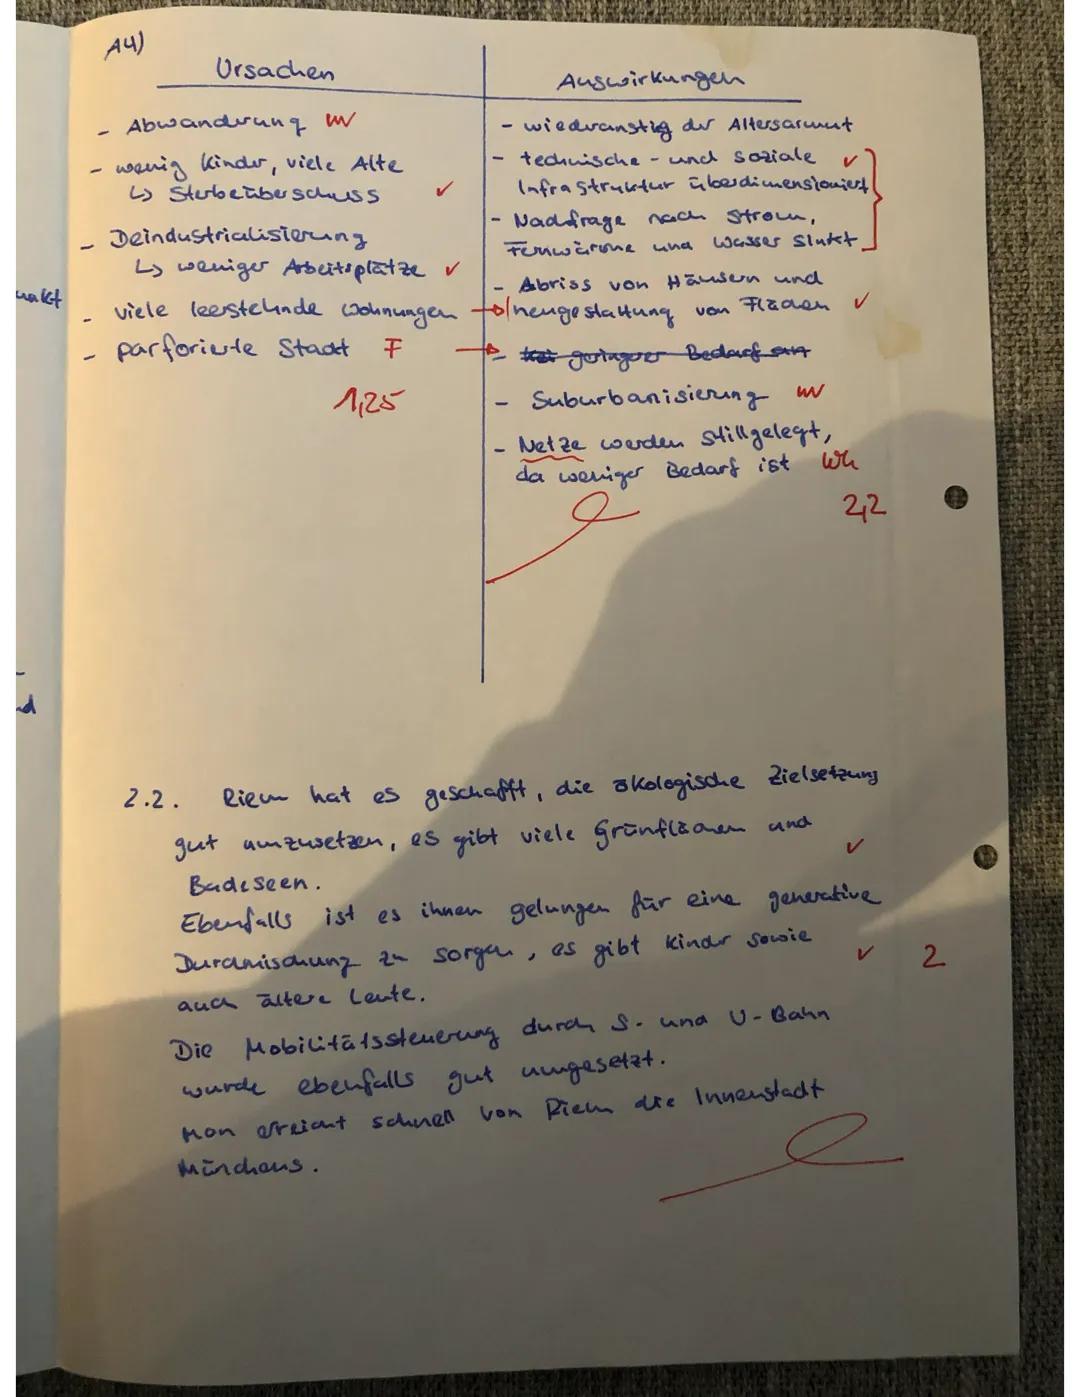 A4)
Ursachen
Auswirkungen
- Abwanderung
- wenig Kinder, viele Alte
↳ Sterbeüberschuss ✓
- Deindustrialisierung
↳ weniger Arbeitsplätze ✓
- viele leerstehnde Wohnungen →
- parforierte Stadt F →
1,25
- wiederanstig der Altersarmut
- technische - und soziale ✓
Infrastruktur überdimensioniert
- Nachfrage nach Strom,
Fernwärme und Wasser sinkt
- Abriss von Häusern und
neugestaltung von Flächen ✓
- geringerer Bedarf an
- Suburbanisierung
- Netze werden stillgelegt,
da weniger Bedarf ist Wh
2,2
unkt
nd
2.2. Riem hat es geschafft, die ökologische Zielsetzung
gut umzusetzen, es gibt viele Grünflächen und ✓
Badeseen.
Ebenfalls ist es ihnen gelungen für eine generative
Durchmischung zu sorgen, es gibt Kinder sowie ✓ 2
auch ältere Leute.
Die Mobilitätssteuerung durch S- und U-Bahn
wurde ebenfalls gut umgesetzt.
Man erreicht schnell von Riem die Innenstadt
Münchens.